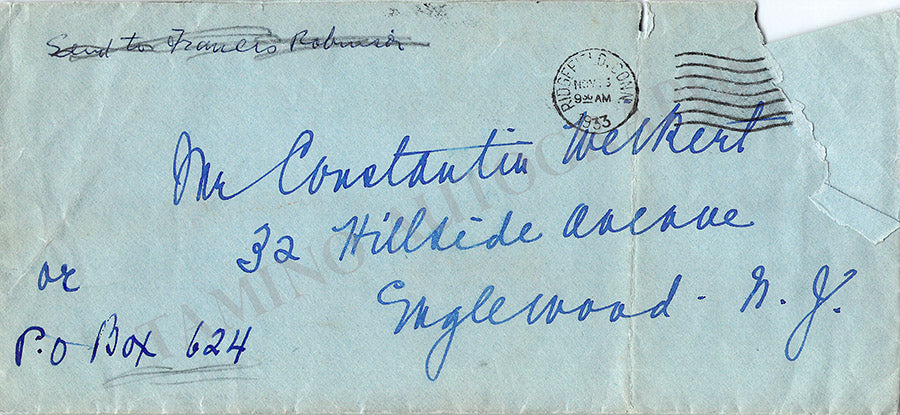 Send to Francis Robinson
RIDGEFIELD, CONN.
NOV 3
9 30 AM
1933
Mr Constantin Weikert
32 Hillside Avenue
Englewood - N. J.
or
P.O Box 624
TAMINO AUTOGRAPHS